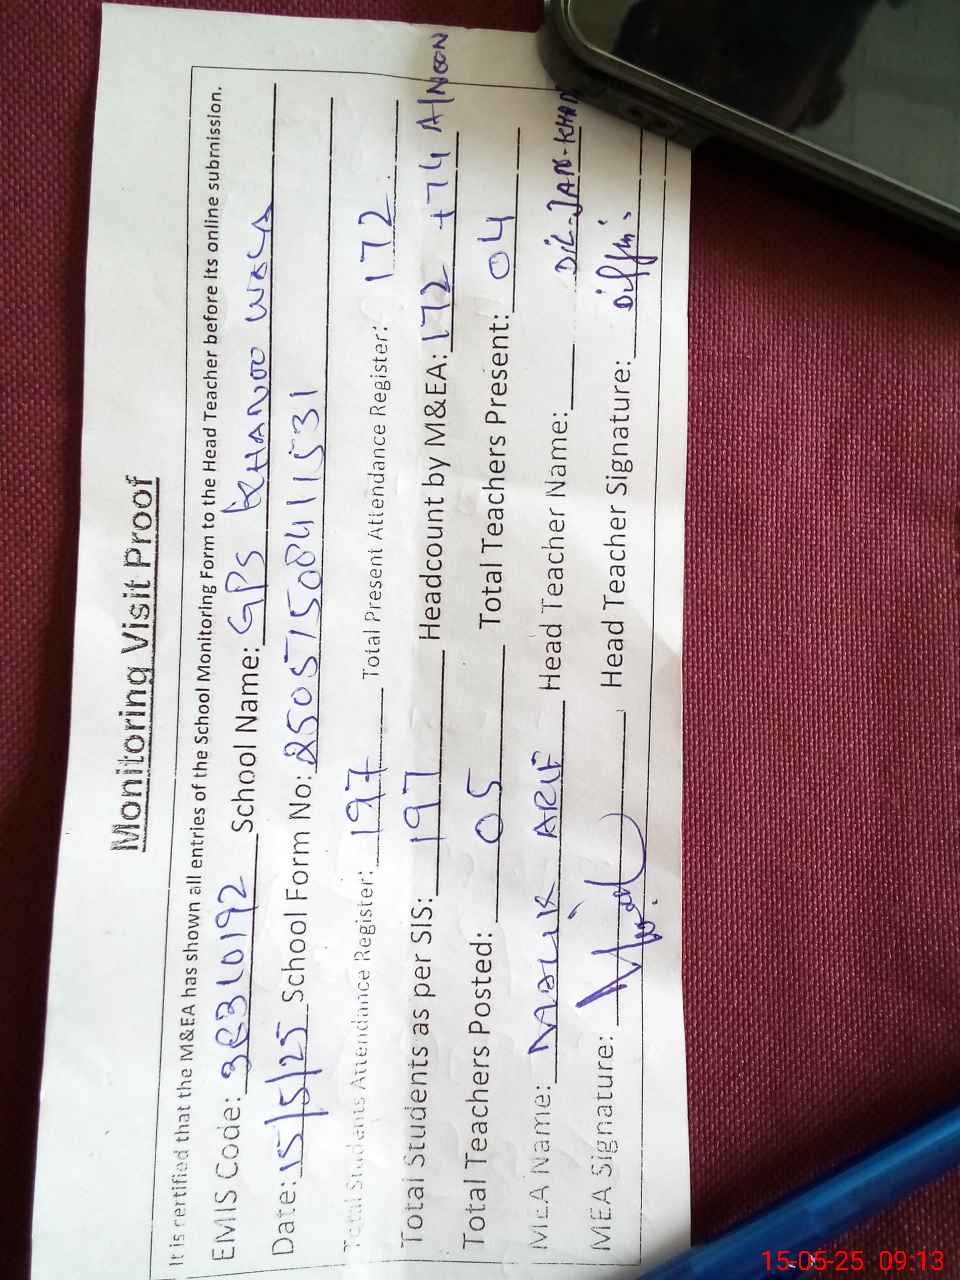 Monitoring Visit Proof
It is certified that the M&EA has shown all entries of the School Monitoring Form to the Head Teacher before its online submission.
EMIS Code: 38310192 School Name: GPS KHANOO WALA
Date: 15/5/25 School Form No: 2505715084111531
Total Students Attendance Register: 197 Total Present Attendance Register: 172
Total Students as per SIS: 197 Headcount by M&EA: 172 +74 AINEON
Total Teachers Posted: 05 Total Teachers Present: 04
MEA Name: MALIK ARIF Head Teacher Name: DIL-JAN-KHAN
MEA Signature: Head Teacher Signature:
15-05-25 09:13